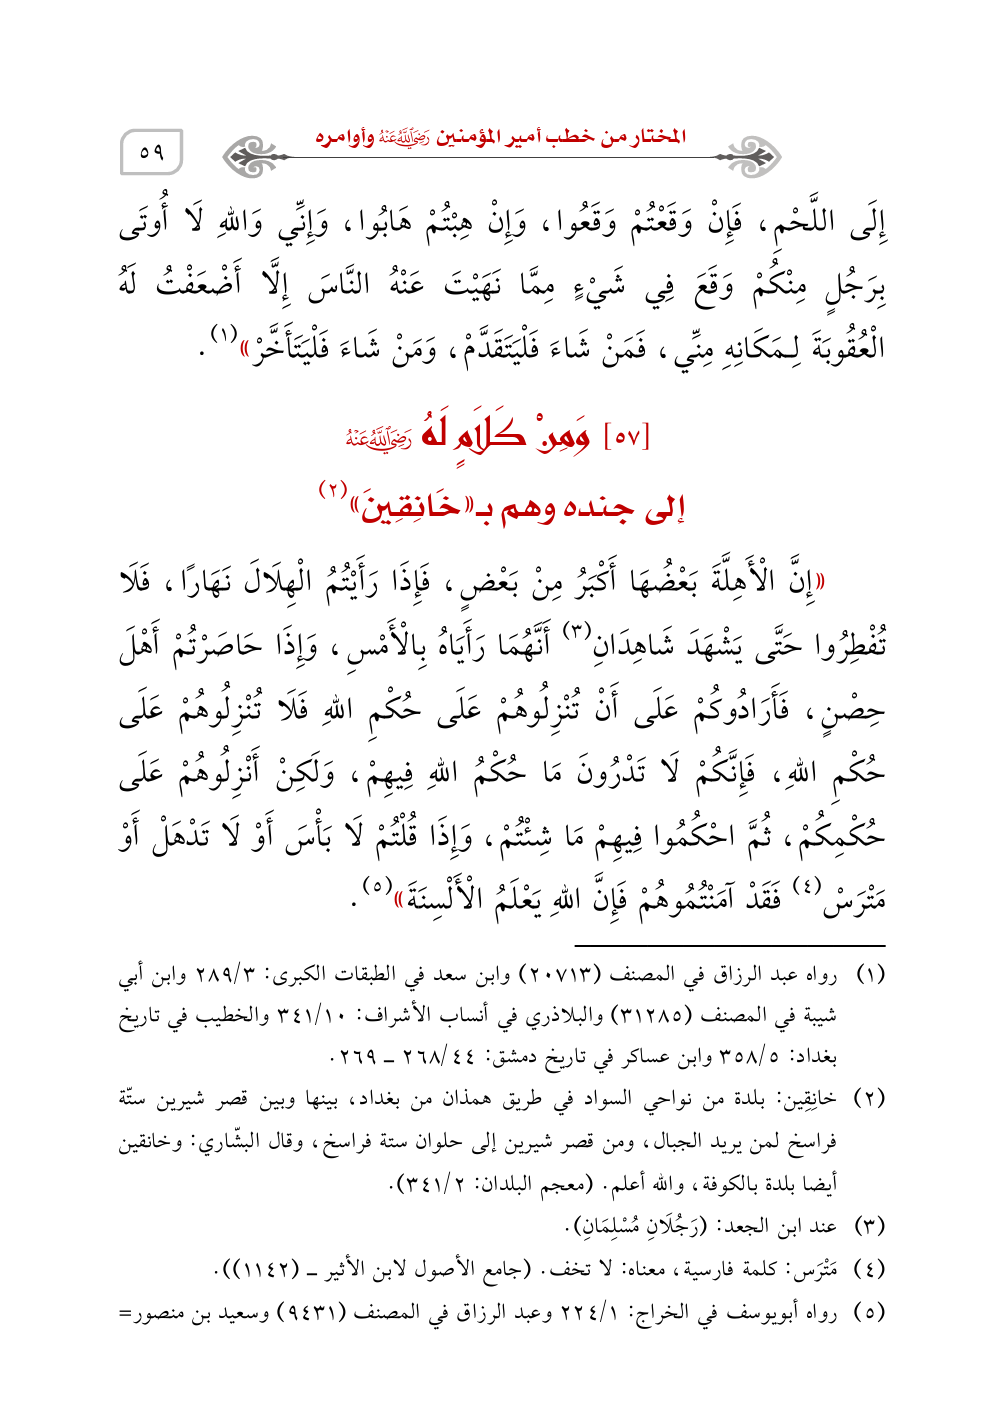 المختار من خطب أمير المؤمنين رَضِيَ اللَّهُ عَنْهُ وأوامره
٥٩
إِلَى اللَّحْمِ، فَإِنْ وَقَعْتُمْ وَقَعُوا، وَإِنْ هِبْتُمْ هَابُوا، وَإِنِّي وَاللهِ لَا أُوتَى
بِرَجُلٍ مِنْكُمْ وَقَعَ فِي شَيْءٍ مِمَّا نَهَيْتَ عَنْهُ النَّاسَ إِلَّا أَضْعَفْتُ لَهُ
الْعُقُوبَةَ لِـمَكَانِهِ مِنِّي، فَمَنْ شَاءَ فَلْيَتَقَدَّمْ، وَمَنْ شَاءَ فَلْيَتَأَخَّرْ»(١).
[٥٧] وَمِنْ كَلَامٍ لَهُ رَضِيَ اللَّهُ عَنْهُ
إلى جنده وهم بـ«خَانِقِينَ»(٢)
«إِنَّ الْأَهِلَّةَ بَعْضُهَا أَكْبَرُ مِنْ بَعْضٍ، فَإِذَا رَأَيْتُمُ الْهِلَالَ نَهَارًا، فَلَا
تُفْطِرُوا حَتَّى يَشْهَدَ شَاهِدَانِ(٣) أَنَّهُمَا رَأَيَاهُ بِالْأَمْسِ، وَإِذَا حَاصَرْتُمْ أَهْلَ
حِصْنٍ، فَأَرَادُوكُمْ عَلَى أَنْ تُنْزِلُوهُمْ عَلَى حُكْمِ اللهِ فَلَا تُنْزِلُوهُمْ عَلَى
حُكْمِ اللهِ، فَإِنَّكُمْ لَا تَدْرُونَ مَا حُكْمُ اللهِ فِيهِمْ، وَلَكِنْ أَنْزِلُوهُمْ عَلَى
حُكْمِكُمْ، ثُمَّ احْكُمُوا فِيهِمْ مَا شِئْتُمْ، وَإِذَا قُلْتُمْ لَا بَأْسَ أَوْ لَا تَدْهَلْ أَوْ
مَتْرَسْ(٤) فَقَدْ آمَنْتُمُوهُمْ فَإِنَّ اللهِ يَعْلَمُ الْأَلْسِنَةَ»(٥).
(١) رواه عبد الرزاق في المصنف (٢٠٧١٣) وابن سعد في الطبقات الكبرى: ٢٨٩/٣ وابن أبي
شيبة في المصنف (٣١٢٨٥) والبلاذري في أنساب الأشراف: ٣٤١/١٠ والخطيب في تاريخ
بغداد: ٣٥٨/٥ وابن عساكر في تاريخ دمشق: ٢٦٨/٤٤ ـ ٢٦٩.
(٢) خانِقِين: بلدة من نواحي السواد في طريق همذان من بغداد، بينها وبين قصر شيرين ستّة
فراسخ لمن يريد الجبال، ومن قصر شيرين إلى حلوان ستة فراسخ، وقال البشّاري: وخانقين
أيضا بلدة بالكوفة، والله أعلم. (معجم البلدان: ٣٤١/٢).
(٣) عند ابن الجعد: (رَجُلَانِ مُسْلِمَانِ).
(٤) مَتْرَس: كلمة فارسية، معناه: لا تخف. (جامع الأصول لابن الأثير ـ (١١٤٢)).
(٥) رواه أبويوسف في الخراج: ٢٢٤/١ وعبد الرزاق في المصنف (٩٤٣١) وسعيد بن منصور=